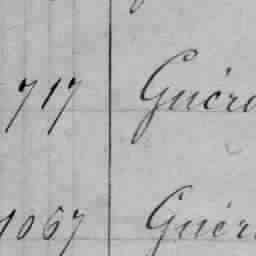 717 Guéri
1067 Guéri